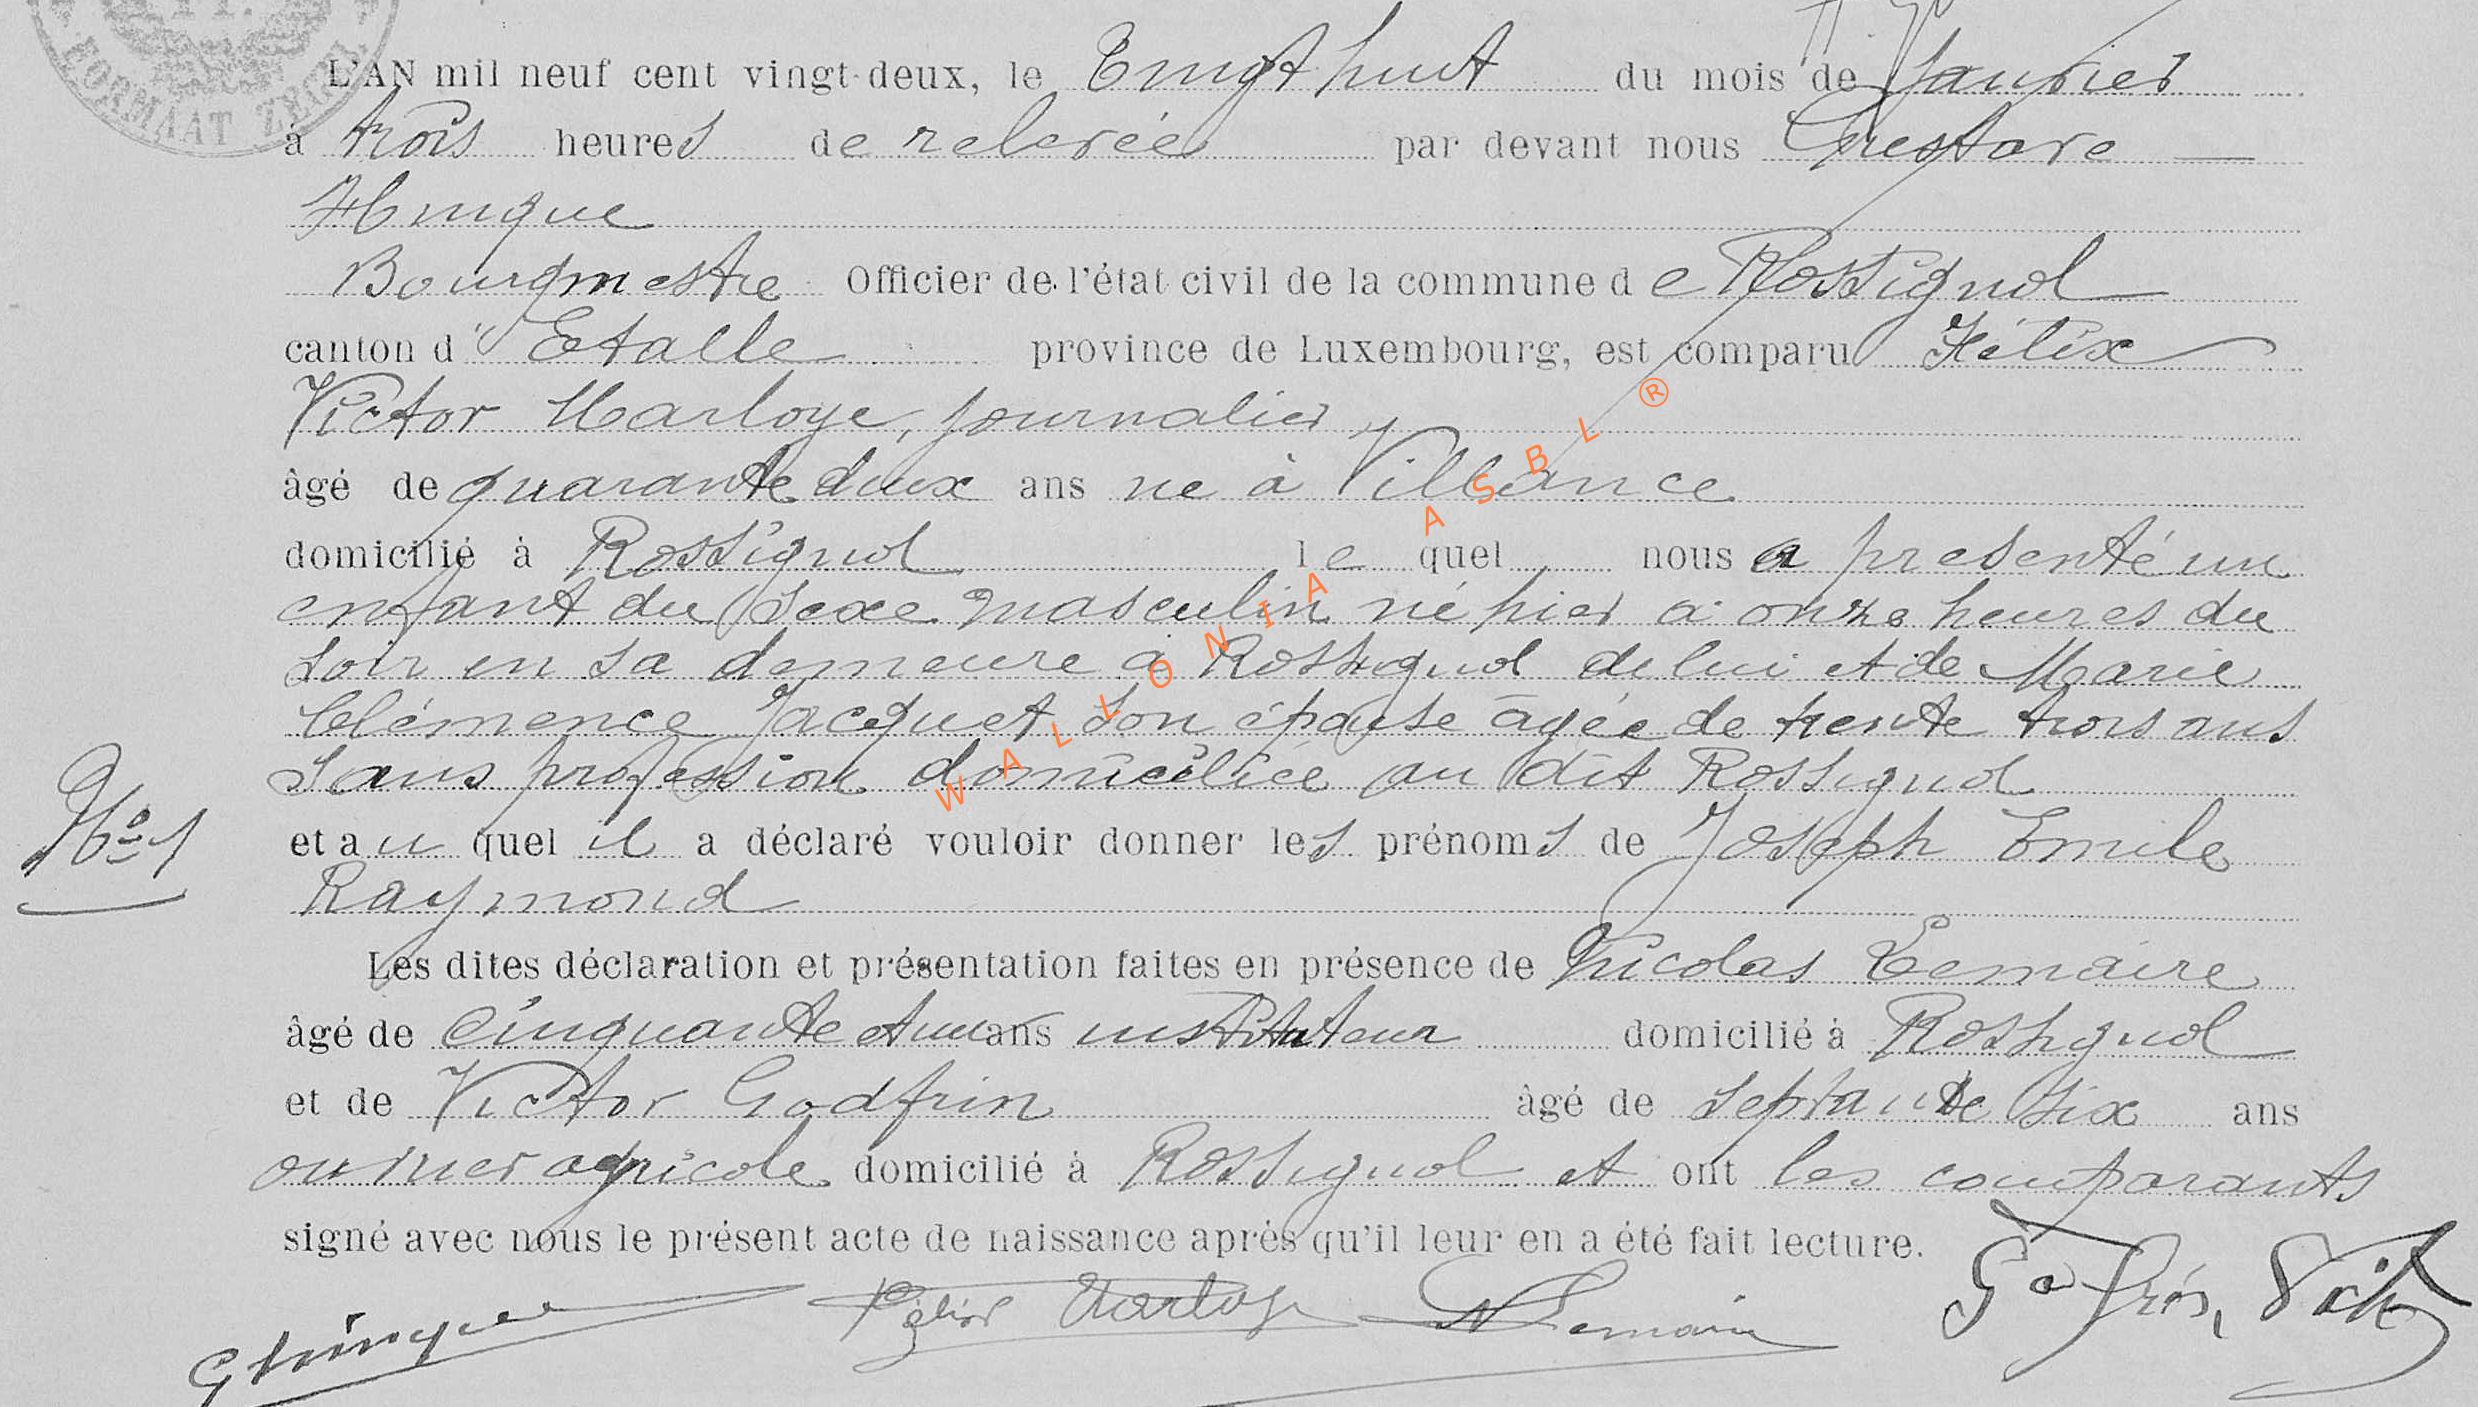 FORMAAT ZEGEL
L'AN mil neuf cent vingt-deux, le Vingt huit du mois de Janvier
à trois heures de relevée par devant nous Gustave
Hinque
Bourgmestre Officier de l'état civil de la commune de Rossignol
canton d'Etalle province de Luxembourg, est comparu Félix
Victor Marloye, journalier
âgé de quarante deux ans né à Villance
domicilié à Rossignol lequel nous a présenté un
enfant du sexe masculin né hier à onze heures du
soir en sa demeure à Rossignol de lui et de Marie
Clémence Jacquet son épouse âgée de trente trois ans
sans profession domiciliée au dit Rossignol
et auquel il a déclaré vouloir donner les prénoms de Joseph Emile
No 1
Raymond
Les dites déclaration et présentation faites en présence de Nicolas Lemaire
âgé de cinquante et un ans instituteur domicilié à Rossignol
et de Victor Godfrin âgé de septante six ans
ouvrier agricole domicilié à Rossignol et ont les comparants
signé avec nous le présent acte de naissance après qu'il leur en a été fait lecture.
GHinque Félix Marloye N Lemaire
WALLONIA ASBL ®